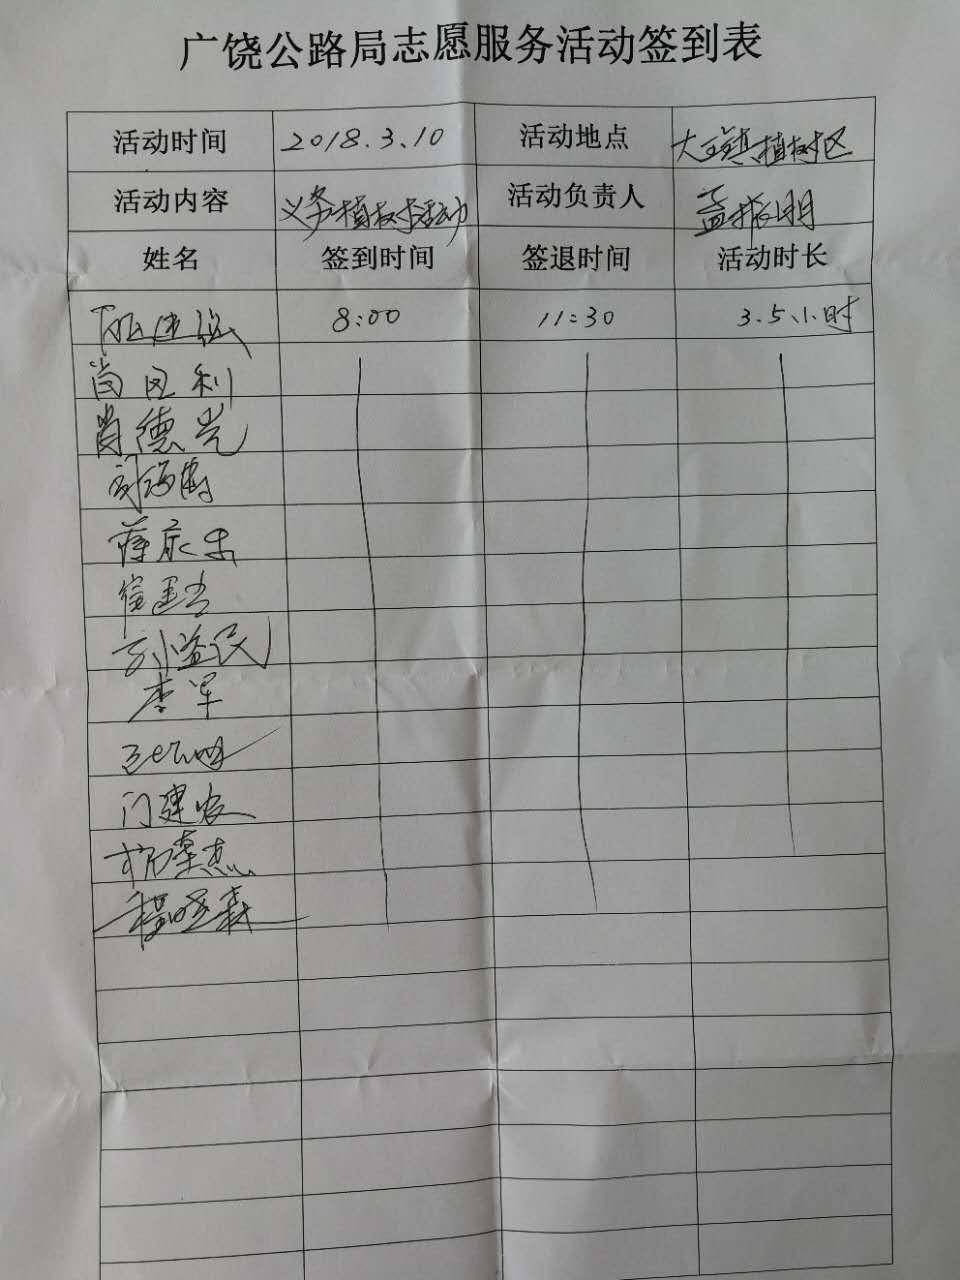 广饶公路局志愿服务活动签到表
活动时间 2018.3.10 活动地点 大王镇植树区
活动内容 义务植树活动 活动负责人 孟振明
姓名 签到时间 签退时间 活动时长
8:00 11:30 3.5小时
尚民利
肖德光
蒋永生
刘益民
李军
门建农
杨荣杰